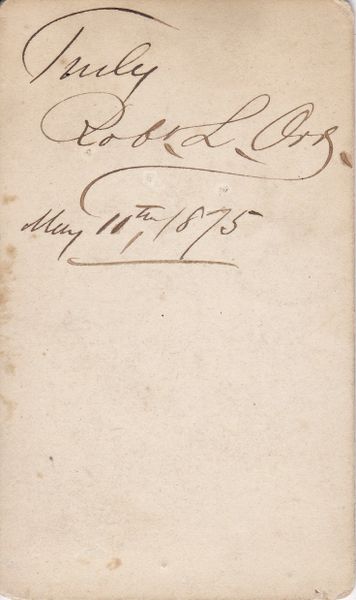 Truly
Robt. L. Orr.
May 11th, 1875